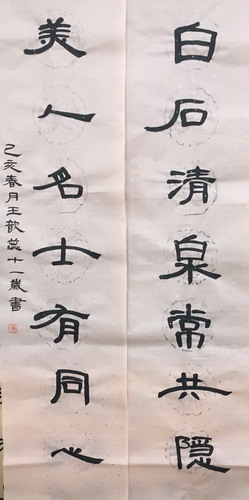 白石清泉常共隐
美人名士有同心
己亥春月王歆蕊十一岁書